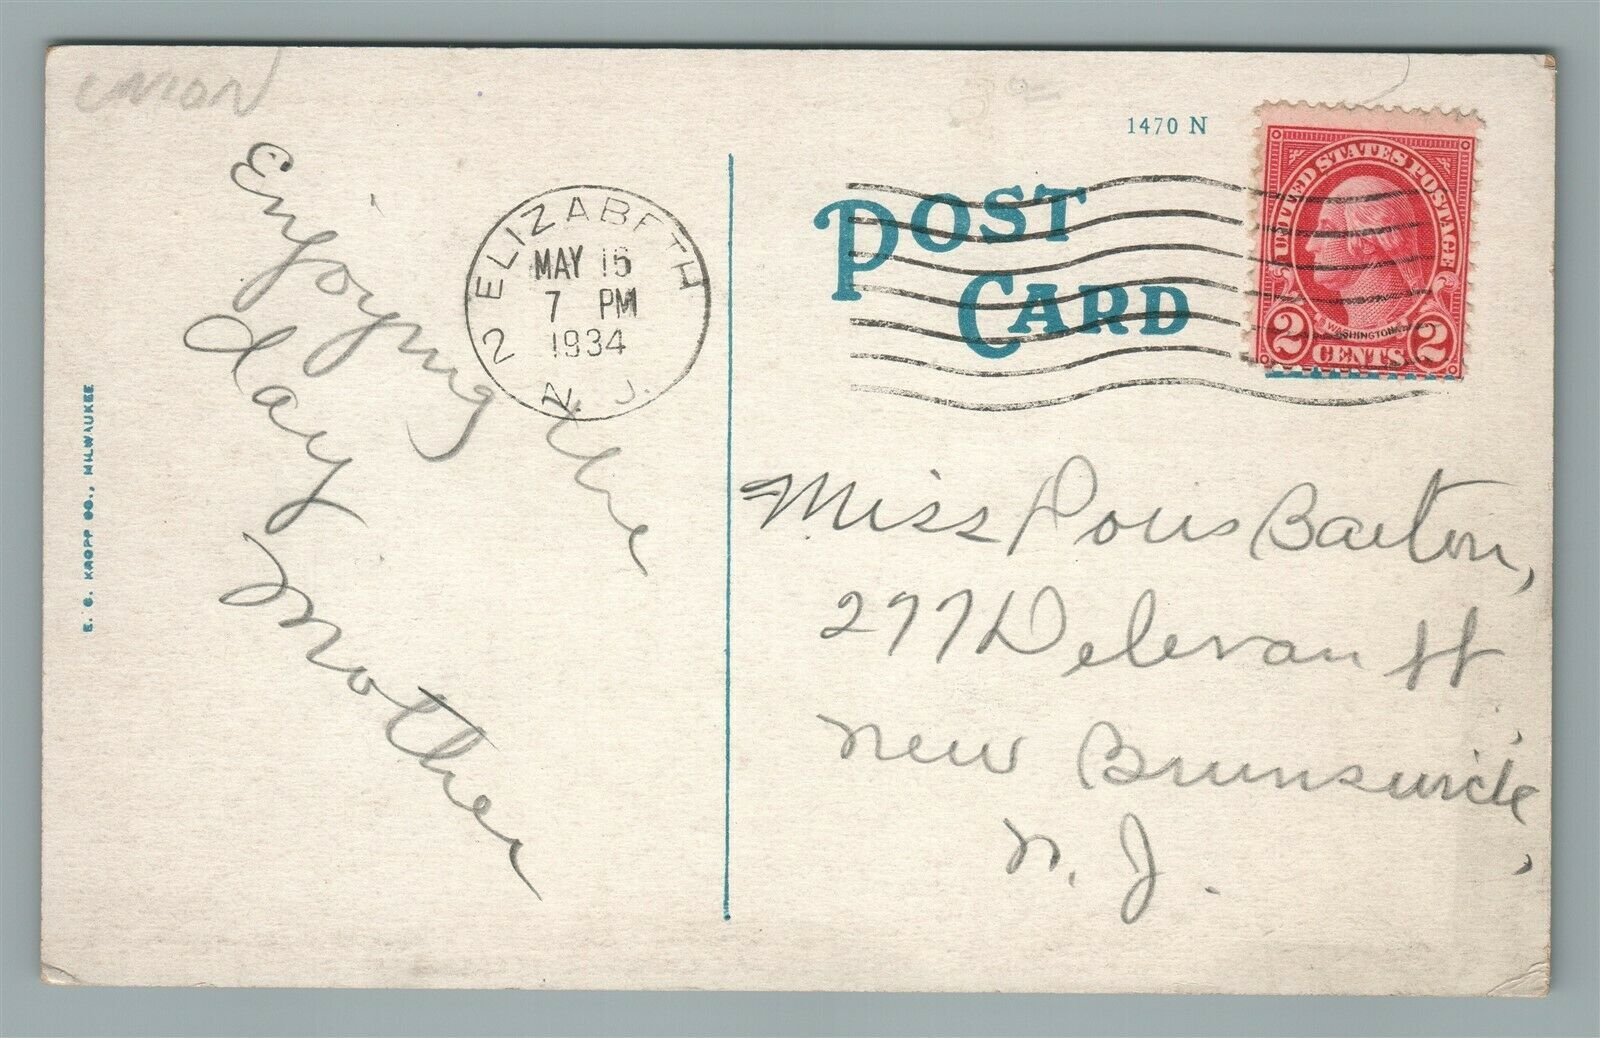 UNION
1470 N
POST
CARD
UNITED STATES POSTAGE
WASHINGTON
2 CENTS 2
2 ELIZABETH
MAY 15
7 PM
1934
N. J.
Enjoying the
day
Mother
E. C. KROPP CO., MILWAUKEE
Miss Doris Barton,
277 Delevan St
New Brunswick,
N. J.